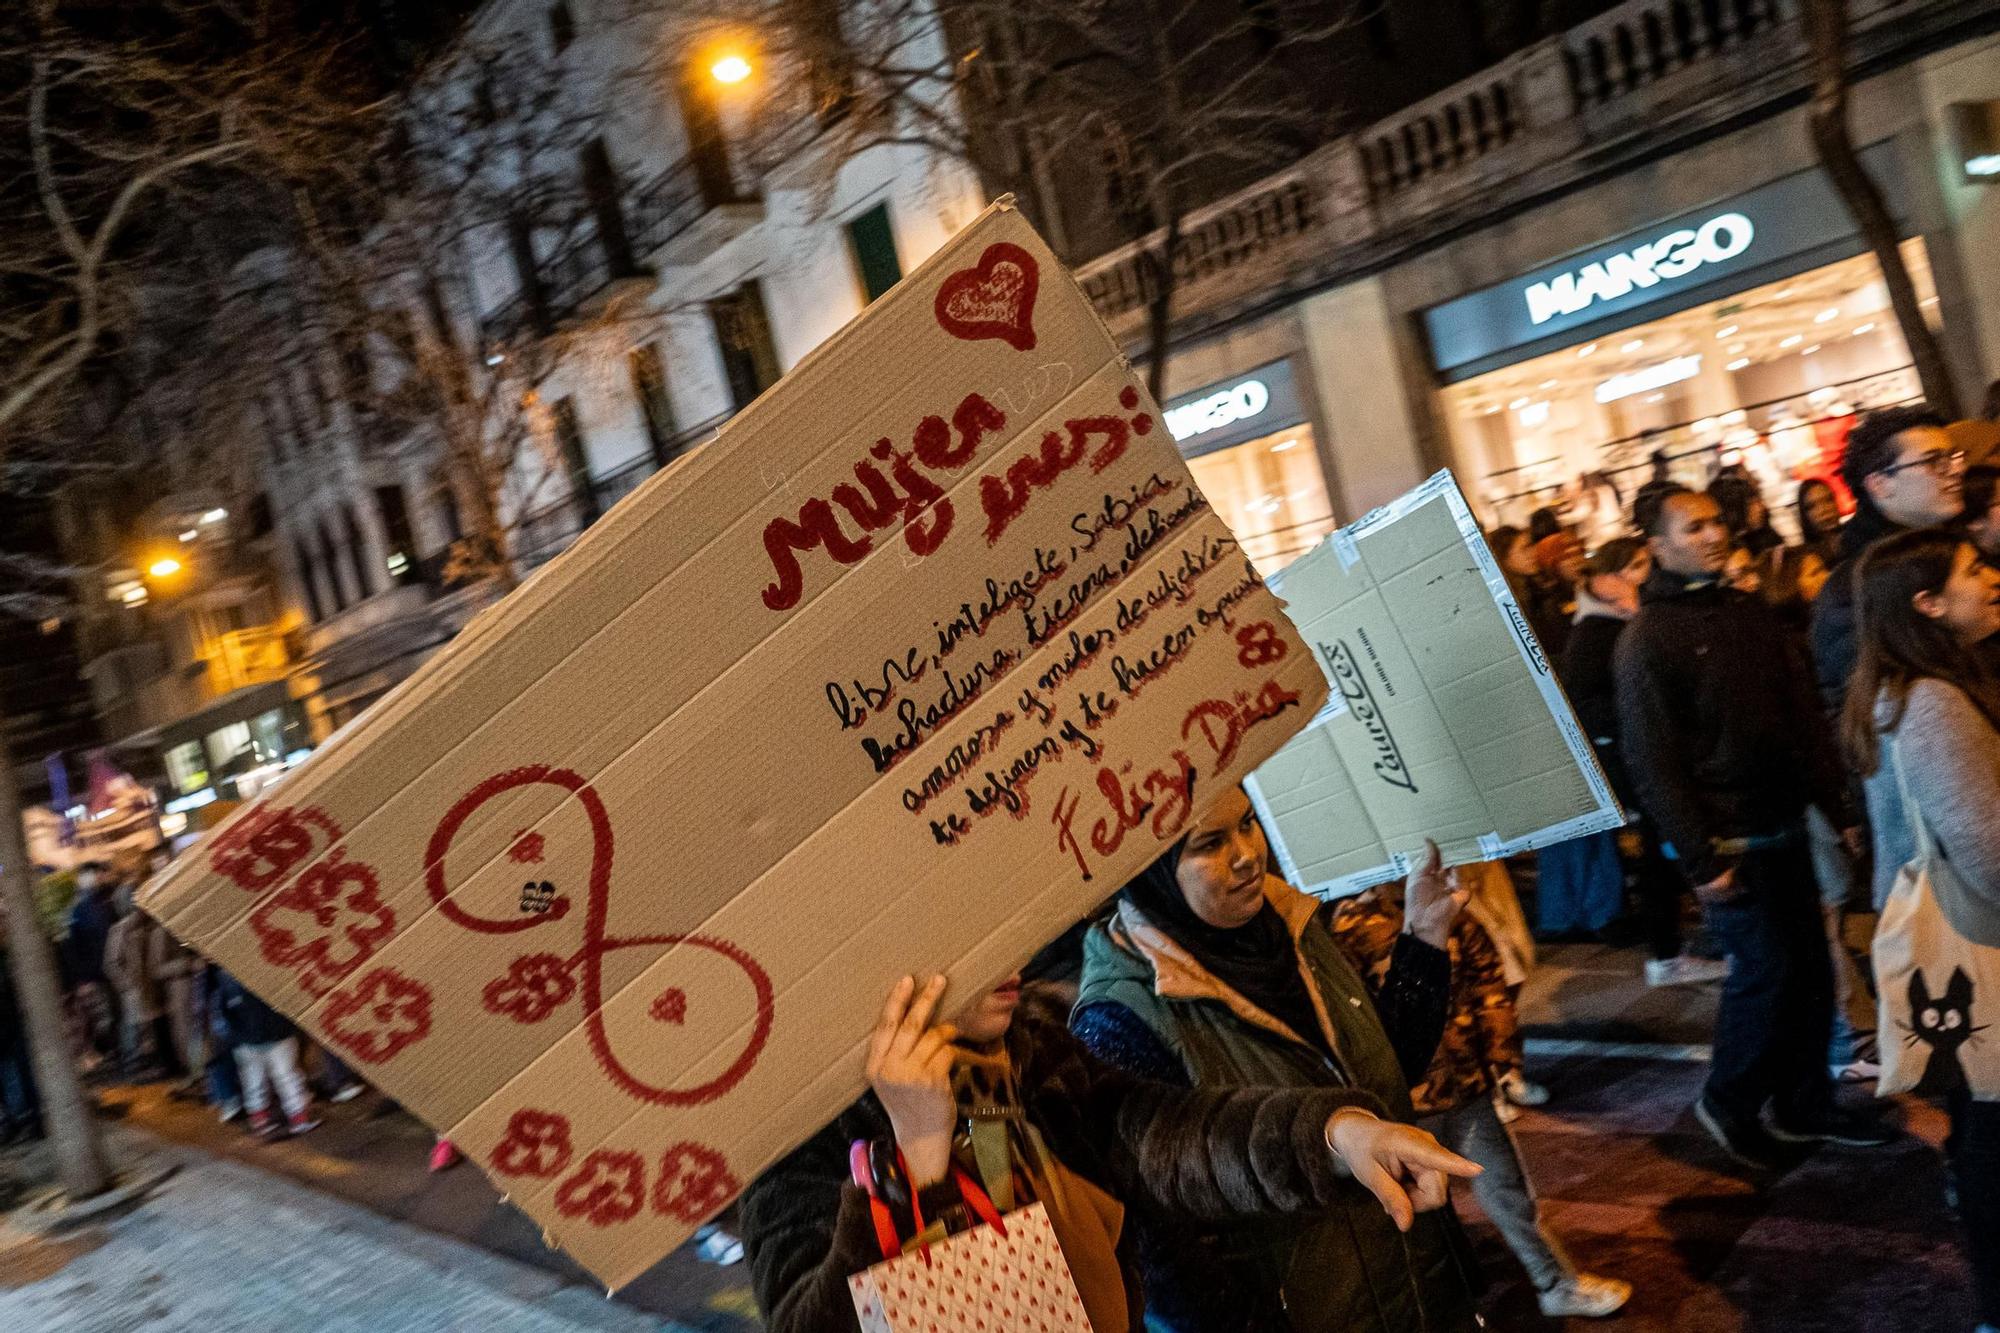 Mujer
eres:
libre, inteligete, Sabia
luchadura, tierna, delicada
amorosa y miles de adjetivos
te definen y te hacen especial
Feliz Día
MANGO
MANGO
LaureTex